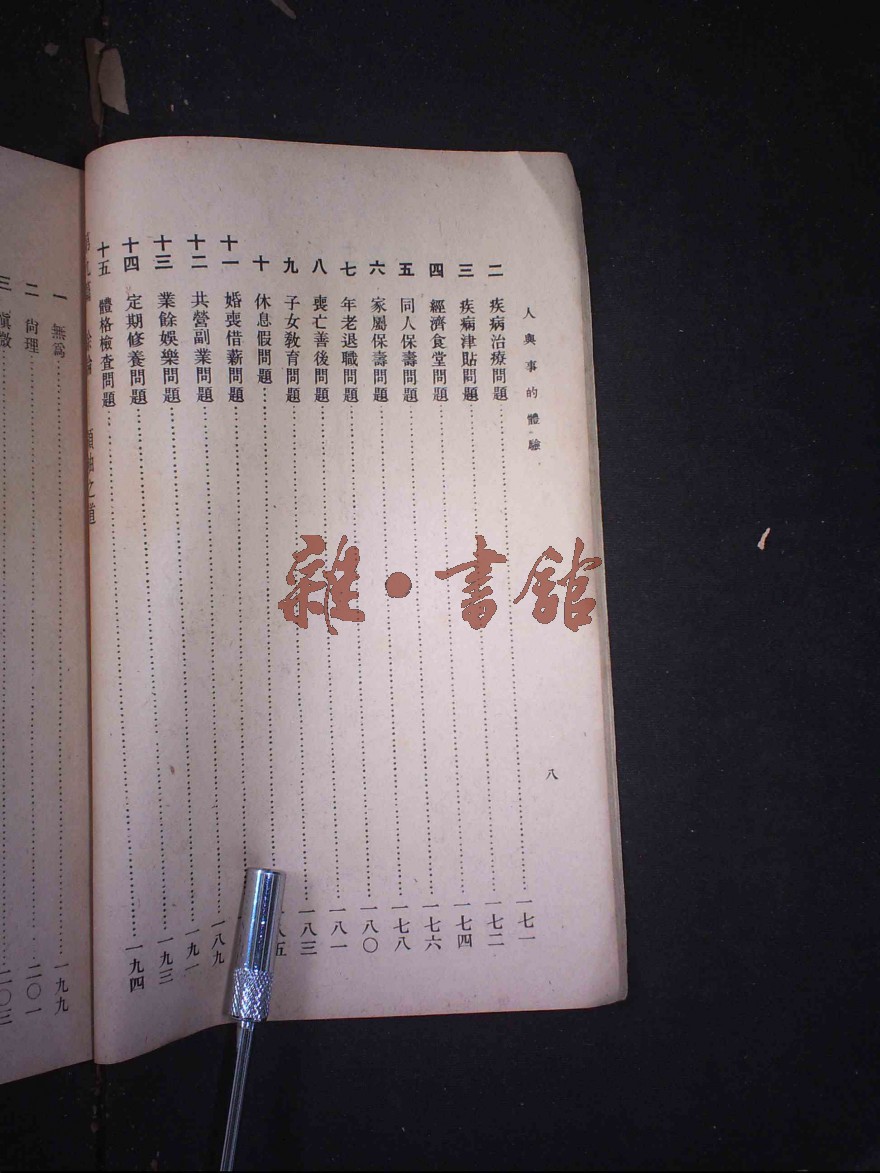 人與事的體驗
八
二 疾病治療問題……一七一
三 疾病津貼問題……一七二
四 經濟食堂問題……一七四
五 同人保壽問題……一七六
六 家屬保壽問題……一七八
七 年老退職問題……一八〇
八 喪亡善後問題……一八一
九 子女教育問題……一八三
十 休息假問題……八五
十一 婚喪借薪問題……
十二 共營副業問題……一八九
十三 業餘娛樂問題……一九一
十四 定期修養問題……一九三
十五 體格檢查問題……一九四
第九篇 領袖之道
一 無爲……一九九
二 尙理……二〇一
三……二〇三
雜·書館